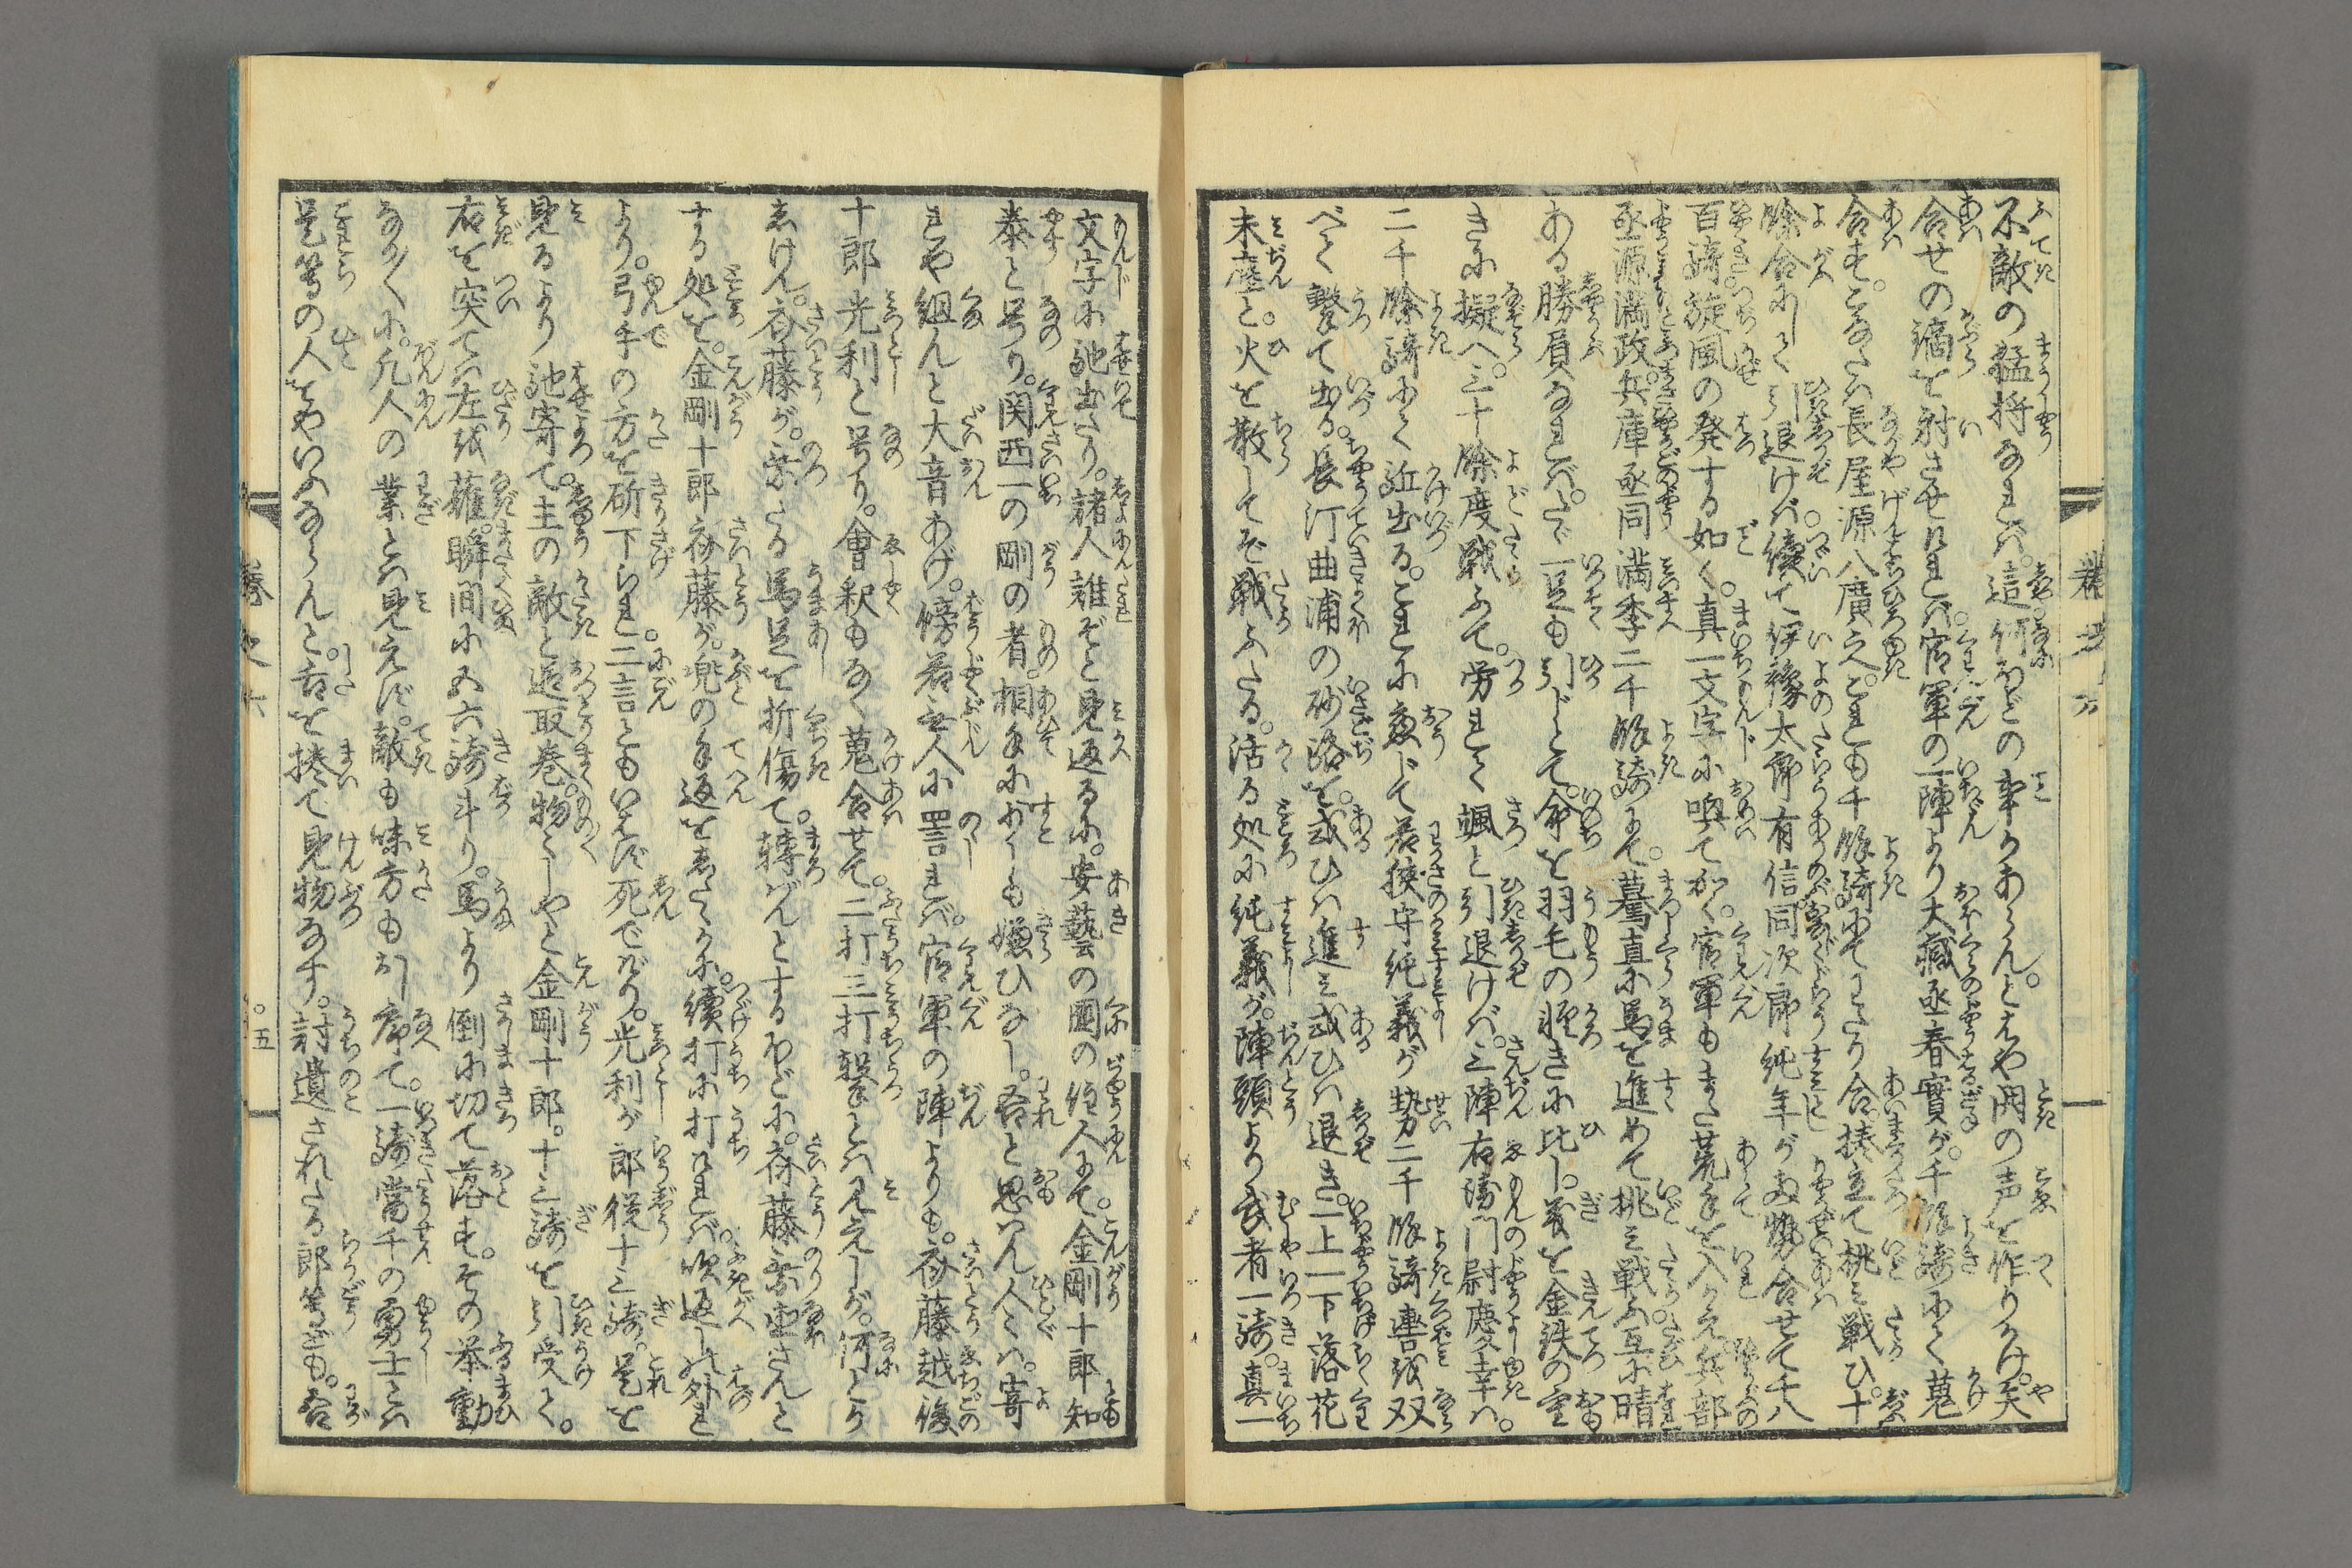 不敵の猛将なれバ。這何ほどの事かあらん。とはや鬨の声を作りかけ。矢
合せの鏑を射させけれバ。官軍の一陣より大蔵丞春實が。千餘騎にて蒐
合す。こなたハ長屋源八廣之。これも千餘騎にてわたり合。揉立て桃ミ戦ひ。十
餘合にして引退けバ。續て伊豫太郎有信。同次郎純年が両勢合せて千八
百騎。旋風の発する如く。真一文字に喚て出く。官軍もまた荒手を入かえ。兵部
丞源満政。兵庫丞同満季二千餘騎にて。驀直に馬を進めて挑ミ戦ふ。互に晴
ある勝負なれバ。たゞ一足も引じとて。命を羽毛の軽きに比し。義を金鉄の重
きに擬へ。三十餘度戦ふて。労れて颯と引退けバ。三陣右衛門尉慶幸ハ。
二千餘騎にて近出る。これに應じて若狭守純義が勢二千餘騎轡を双
べて撃て出る。長汀曲浦の砂路を。或ひハ進ミ或ひハ退き。一上一下落花
未塵と。火を散してぞ戦ふたる。活る処に純義が。陣頭より武者一騎。真一
文字に馳出たり。諸人誰ぞと見返るに。安藝の國の住人にて。金剛十郎知
泰と号り。関西一の剛の者。相手に少しも嫌ひなし。吾と思ハん人々ハ。寄
れや組んと大音あげ。傍若無人に詈れバ。官軍の陣よりも。斎藤越後
十郎光利と号り。會釈もなく蒐合せて。二打三打撃とハ見えしが。何とか
しけん。斎藤が。乗たる馬足を折傷て。轉ばんとするほどに。斎藤乗直さんと
する処を。金剛十郎斎藤が。兜の手返をしたゝかに。續打に打けれバ。吹返しの外れ
より。弓手の方を斫下られ。二言ともいはず死でげり。光利が郎従十三騎。是を
見るより馳寄て。主の敵と追取巻。物々しやと金剛十郎。十三騎を引受て。
右を突てハ左を薙。瞬間に五六騎斗り。馬より倒に切て落す。その挙動
なか〳〵に。凡人の業とハ見えず。敵も味方もおし靡て。一騎當千の勇士とハ
是等の人をやいふならんと。舌を捲て見物なす。討遺されたる郎等ども。吾
巻之六
五